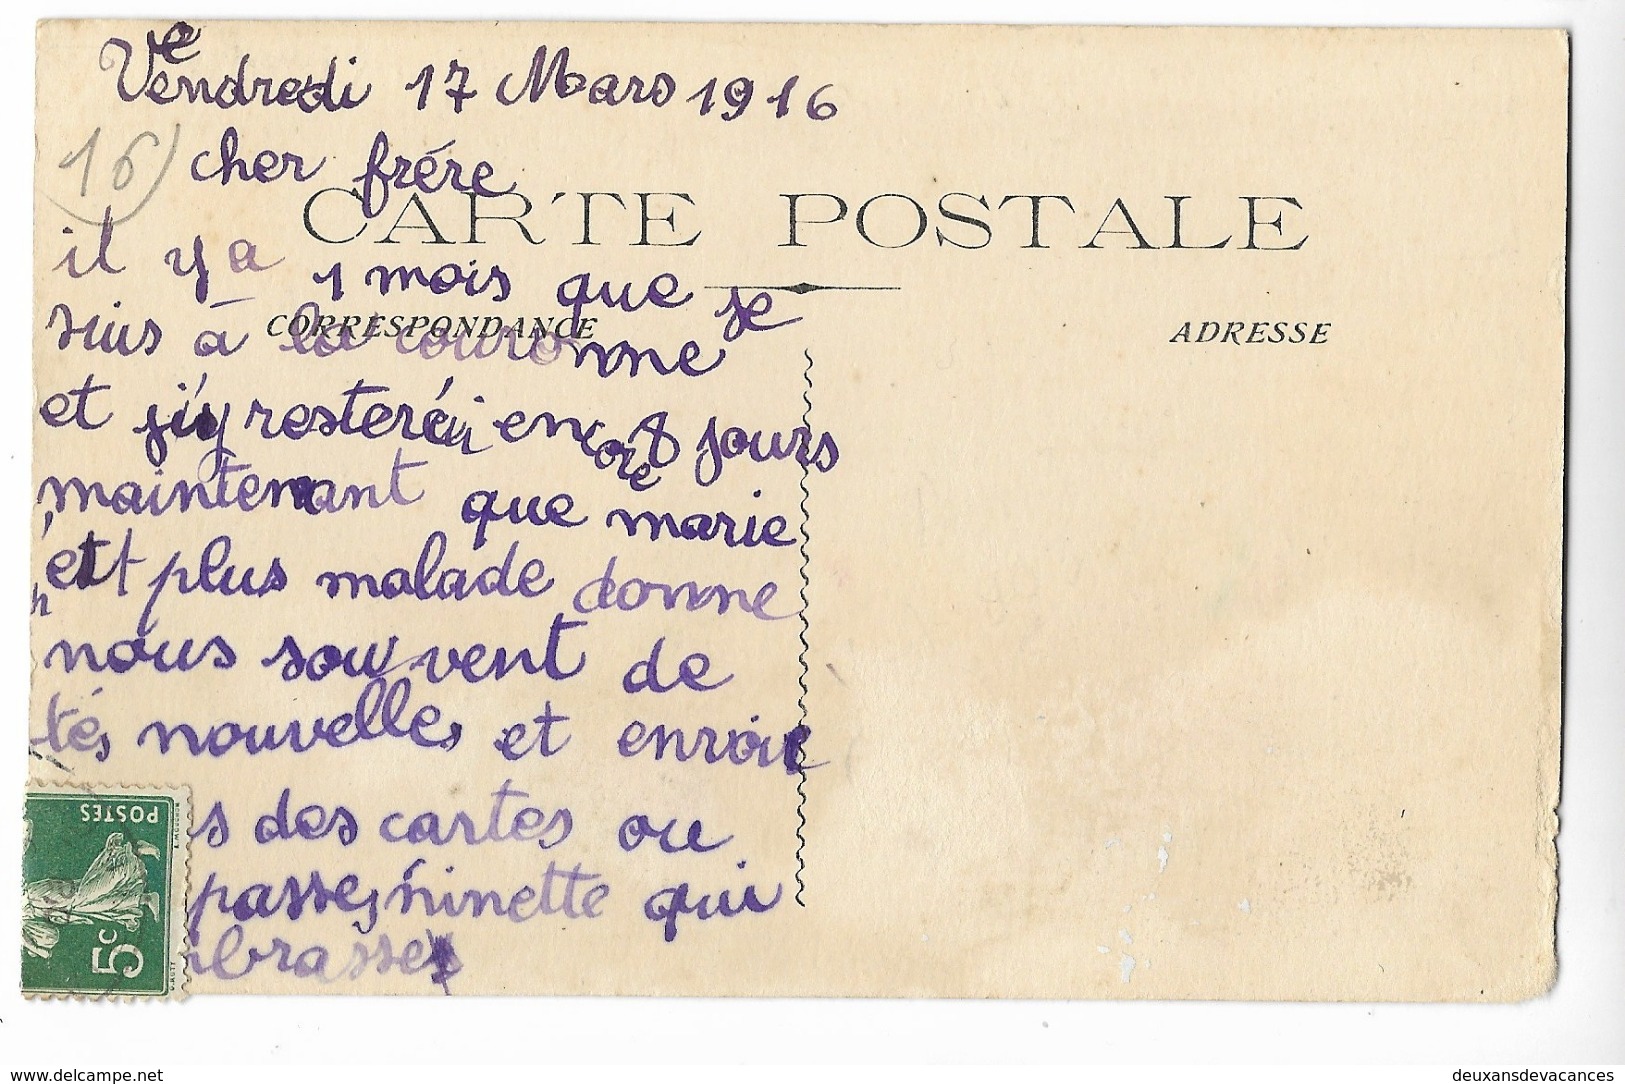 Vendredi 17 Mars 1916
16
cher frére
CARTE POSTALE
il y a 1 mois que je
CORRESPONDANCE
ADRESSE
suis à la couronne
et j'iy resteréai encore 8 jours
maintenant que marie
est plus malade donne
nous souvent de
tés nouvelles et envoie
s des cartes ou
passe, ninette qui
mbrasse
POSTES
5c
delcampe.net
deuxansdevacances